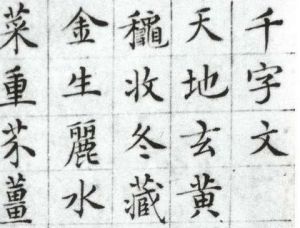 千字文
天地玄黃
穐收冬藏
金生麗水
菜重芥薑